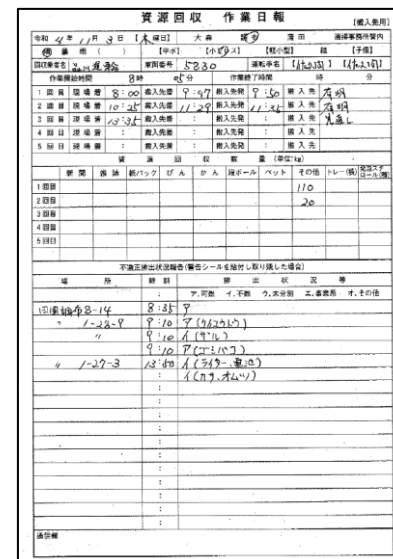 資源回収 作業日報
[搬入先用]
令和 4年 11月 3日 【木曜日】 大森 調布 蒲田 清掃事務所管内
雨 ( ) 【中ボ】 【小プレス】 【軽小型】 【予備】
回収業者名 品川運輸 車両番号 5830 運転手名 【佐々間】 【佐々間】
作業開始時間 8時 05分 作業終了時間 時 分
1回目 現場着 8:00 搬入先着 9:47 搬入先発 9:50 搬入先 有明
2回目 現場着 10:25 搬入先着 11:29 搬入先発 11:35 搬入先 有明
3回目 現場着 13:35 搬入先着 : 搬入先発 : 搬入先 見直し
4回目 現場着 : 搬入先着 : 搬入先発 : 搬入先
5回目 現場着 : 搬入先着 : 搬入先発 : 搬入先
資源回収数量 (単位:kg)
新聞 雑誌 紙パック びん かん 段ボール ペット その他 トレー(袋) 発泡スチロール(袋)
1回目 110
2回目 20
3回目
4回目
5回目
不適正排出状況報告(警告シールを貼付し取り残した場合)
場所 時刻 排出状況等
: ア.可燃 イ.不燃 ウ.未分別 エ.事業系 オ.その他
田園調布8-14 8:35 ア
〃 1-23-9 9:10 ア(ケイコウトウ)
〃 9:10 イ(ザル)
9:10 ア(ゴミバコ)
〃 1-27-3 13:50 イ(ライター、電池)
: イ(カサ、オムツ)
通信欄